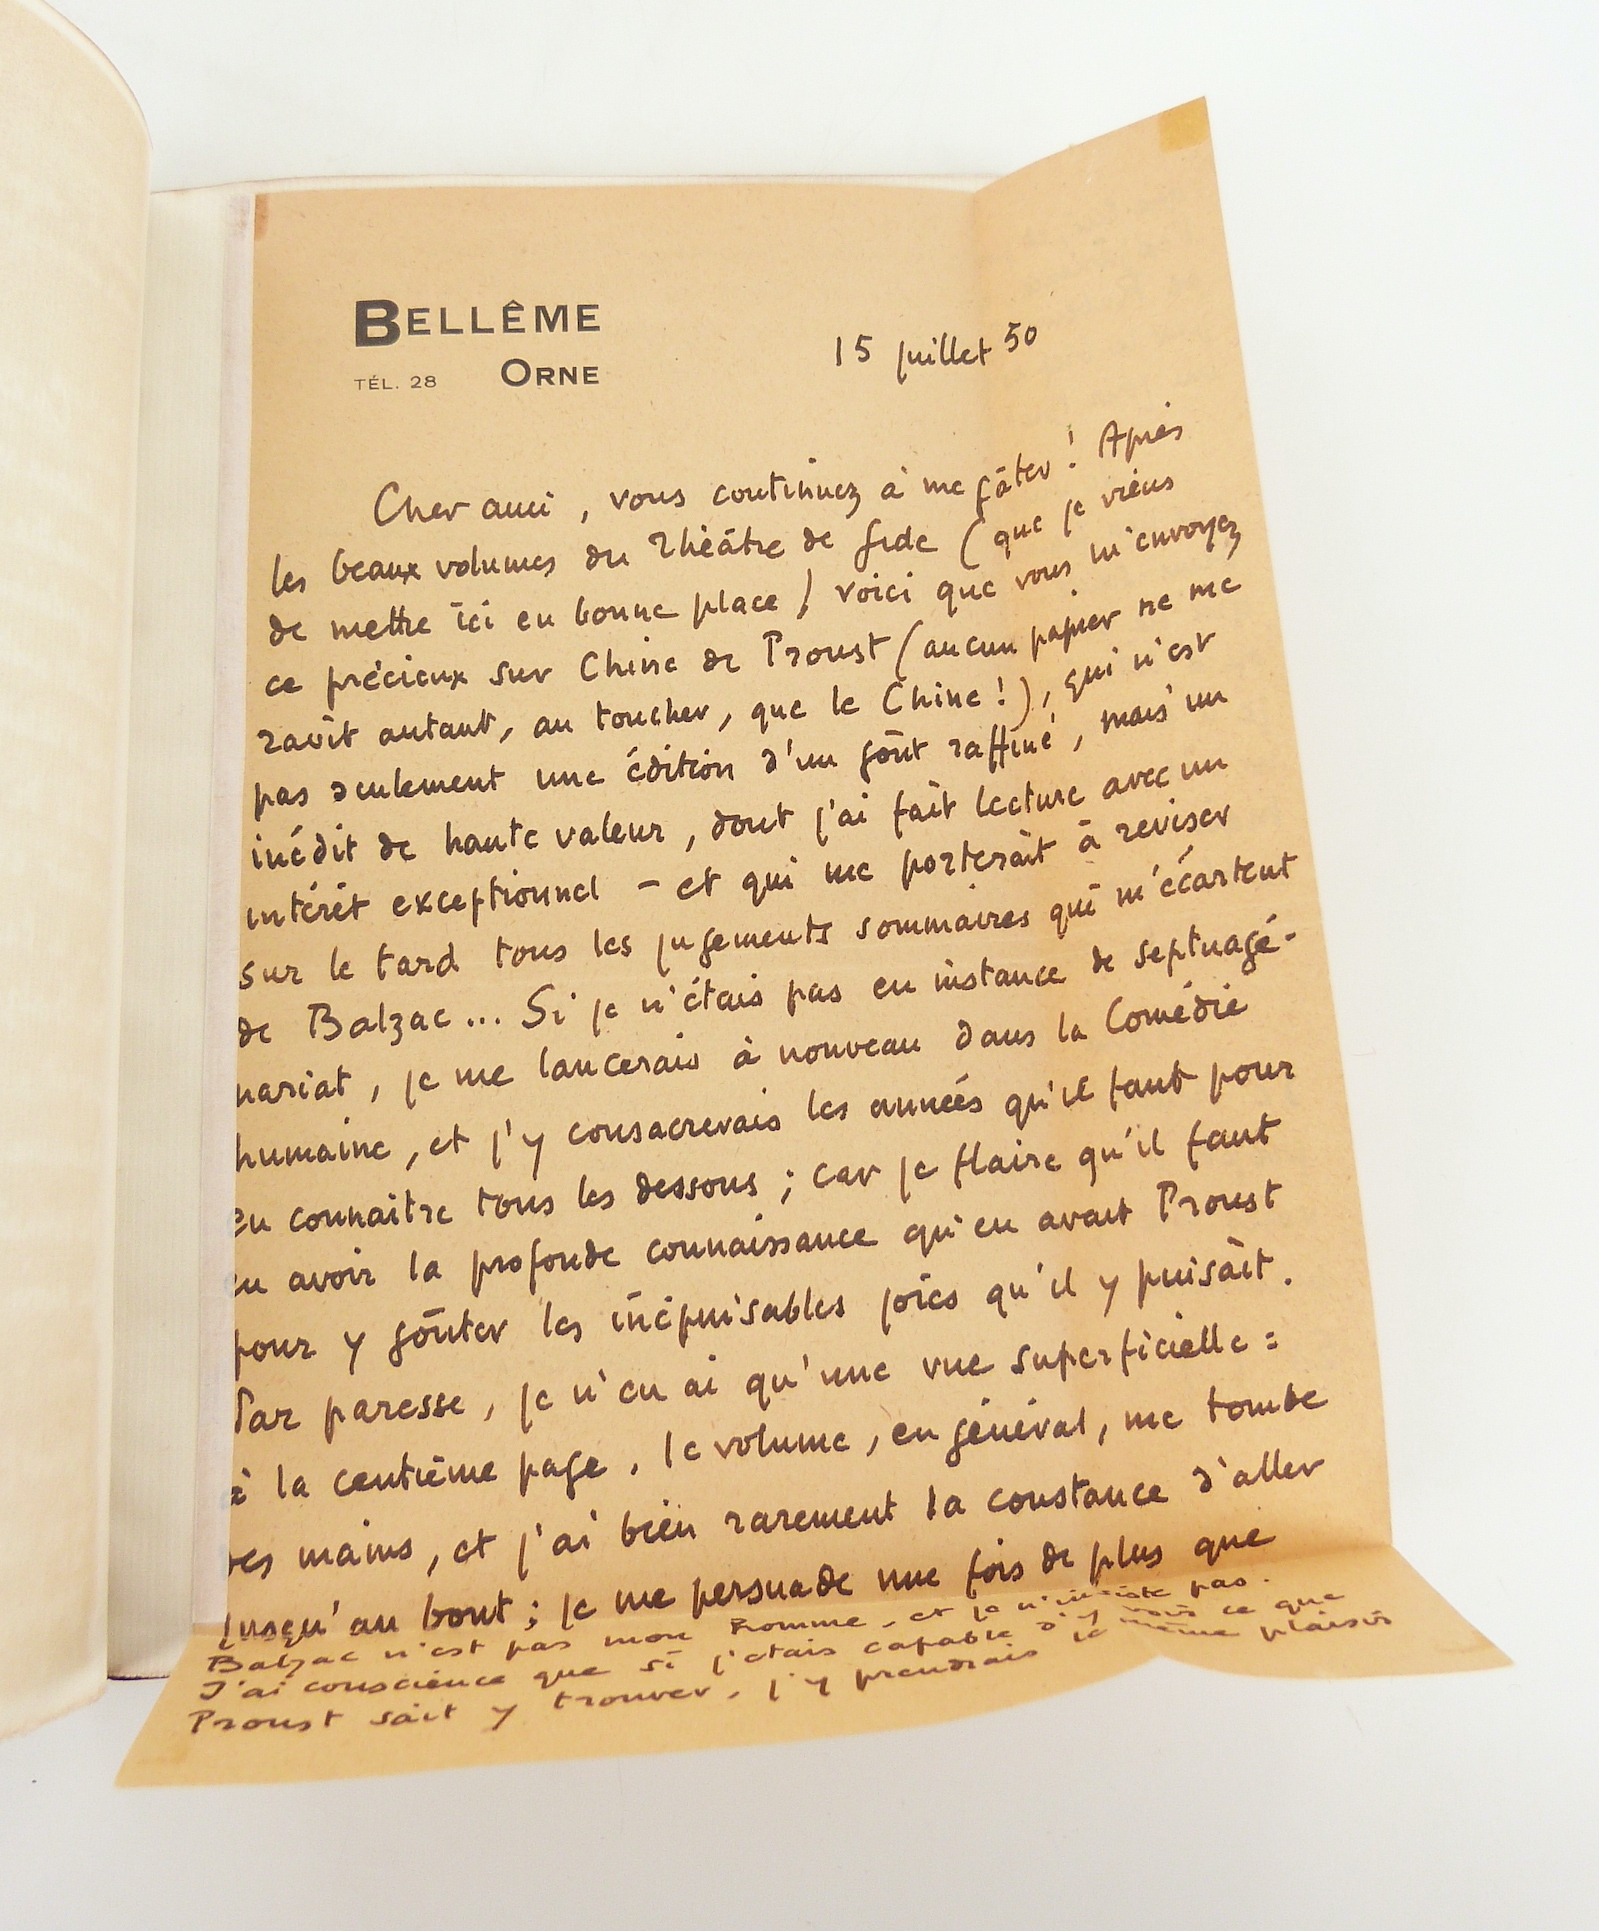 BELLÊME
TÉL. 28 ORNE
15 juillet 50
Cher ami, vous continuez à me gâter ! Après
les beaux volumes du Théâtre de Gide (que je viens
de mettre ici en bonne place) voici que vous m'envoyez
ce précieux sur Chine de Proust (aucun papier ne me
ravit autant, au toucher, que le Chine !), qui n'est
pas seulement une édition d'un goût raffiné, mais un
inédit de haute valeur, dont j'ai fait lecture avec un
intérêt exceptionnel – et qui me porterait à reviser
sur le tard tous les jugements sommaires qui m'écartent
de Balzac... Si je n'étais pas en instance de septuagé-
nariat, je me lancerais à nouveau dans la Comédie
humaine, et j'y consacrerais les années qu'il faut pour
en connaître tous les dessous ; car je flaire qu'il faut
en avoir la profonde connaissance qu'en avait Proust
pour y goûter les inépuisables joies qu'il y puisait.
Par paresse, je n'en ai qu'une vue superficielle :
à la centième page, le volume, en général, me tombe
des mains, et j'ai bien rarement la constance d'aller
jusqu'au bout ; je me persuade une fois de plus que
Balzac n'est pas mon homme, et je n'insiste pas.
J'ai conscience que si j'étais capable d'y voir ce que
Proust sait y trouver, j'y prendrais le même plaisir